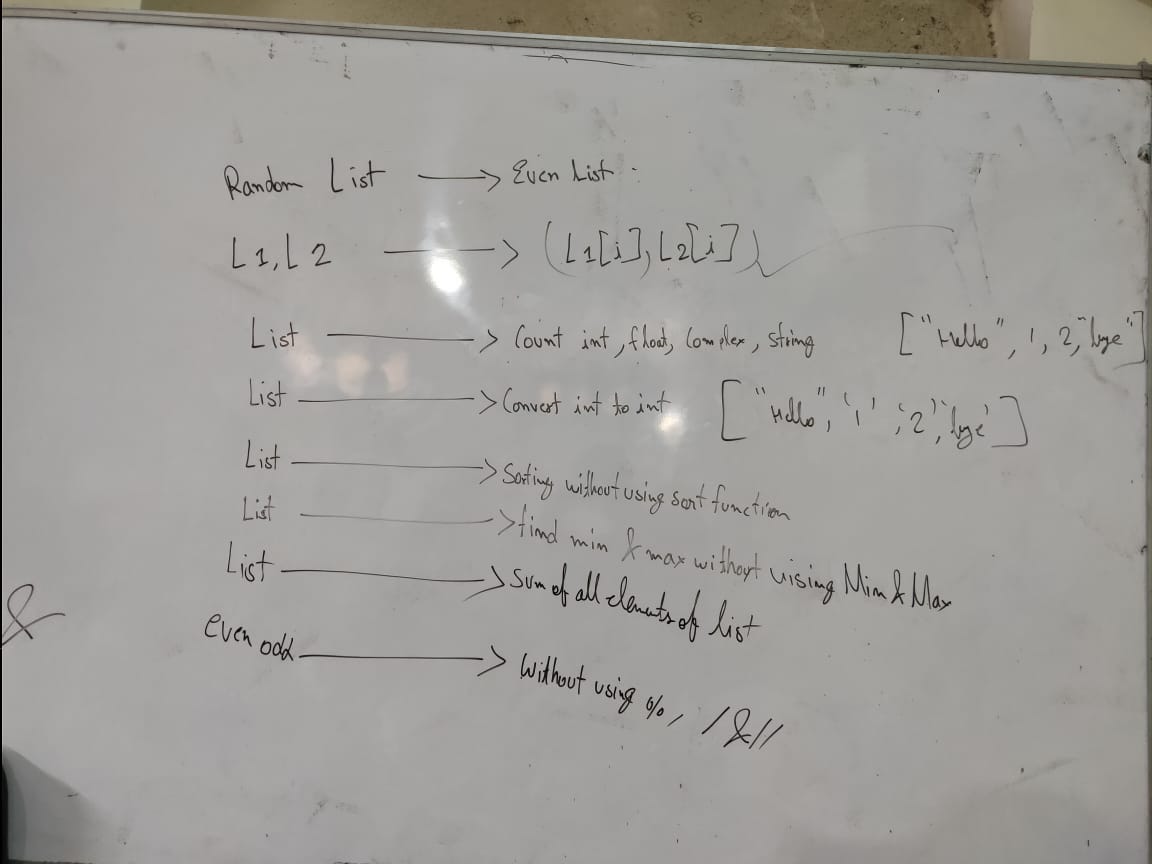 Random List → Even List.
L1, L2 → (L1[i], L2[i])
List → Count int, float, Complex, string ["Hello", 1, 2, "bye"]
List → Convert int to int ["Hello", '1', '2', 'bye']
List → Sorting without using sort function
List → find min & max without using Min & Max
List → Sum of all elements of list
even odd → Without using %, / & //
&